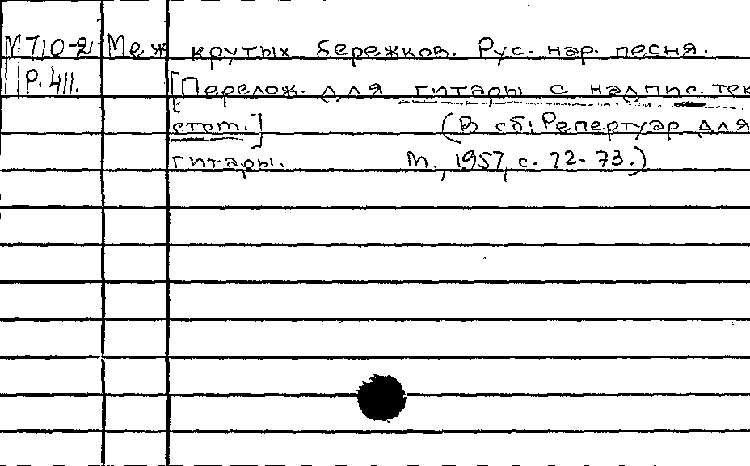 М 710-2 Меж крутых бережков. Рус. нар. песня.
Р. 411. [Перелож. для гитары с надпис. тек
стом.] (В сб: Репертуар для
гитары. М., 1957, с. 72-73.)